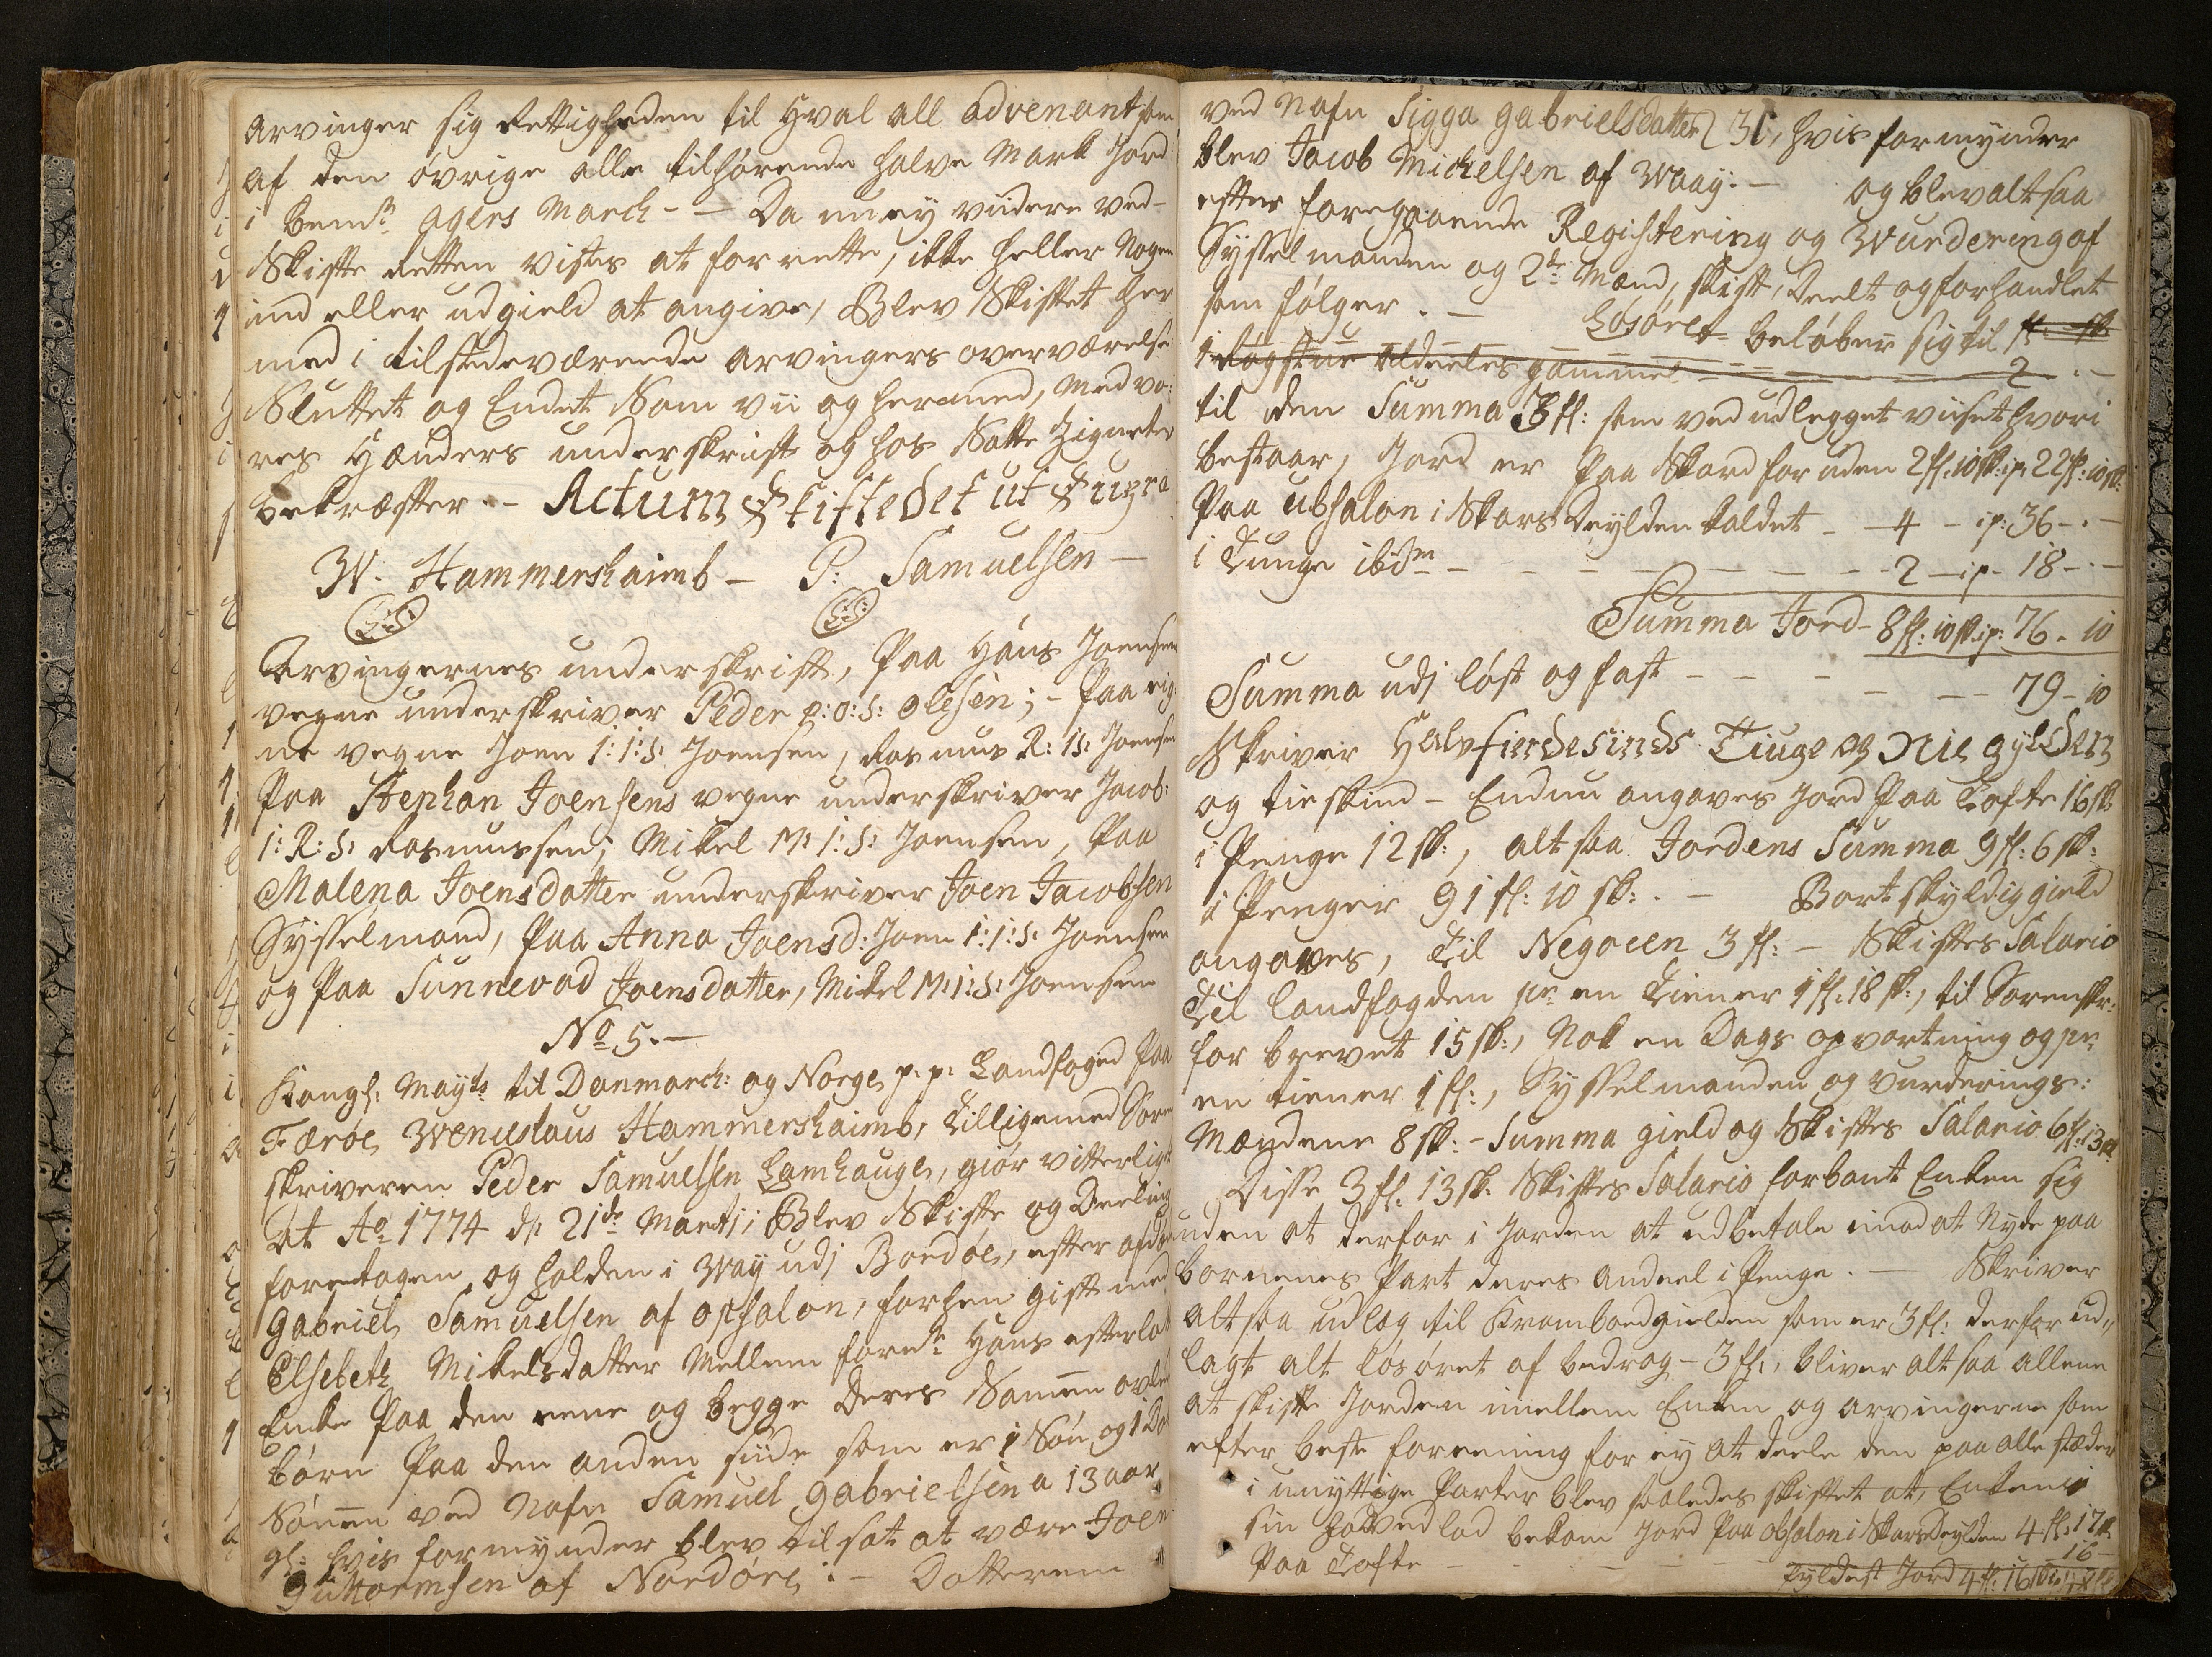 arvinger sig Rettigheden til Hval all advenant som
af den øvrige alle tilhørende halve Mark Jord
i bemte Agers March - - Da nu ej viidere ved
Skifte Retten vistes at forrette, ikke heller Nogen
ind eller udgield at angive, Blev Skiftet her
med i tilstedeværende arvingers overværelse
Sluttet og Endet Som vii og hermed, Med vo:
res Hænders underskrift og hos Satte Zigneter
bekræfter - Actum Skiftedet ut Supra
W. Hammershaimb - P: Samuelsen -
L:S: L:S:
Arvingernes underskrift, Paa Hans Joensen
vegne underskriver Peder P:O:S: Olesen; - Paa eig-
ne vegne Joen I:I:S: Joensen, Rasmus R:IS: Joensen
Paa Stephan Joensens vegne underskriver Jacob:
I:R:S: Rasmussen; Mikel M:I:S: Joensen, Paa
Malena Joensdatter underskriver Joen Jacobsen
Sysselmand, Paa Anna Joensd: Joen I:I:S: Joensen
og Paa Sunnevad Joensdatter, Mikel M:I:S: Joensen
No 5. -
Kongl: Mayts til Danmarch: og Norge p.p. Landfoged Paa
Færøe Wenceslaus Hammershaimb, Tilligemed Soren
skriveren Peder Samuelsen Lamhauge, giør vitterligt
At Ao 1774 d: 21de Martj; Blev Skifte og Deeling
foretagen og holden i Waaj udj Bordøe, efter afdøde
Gabriel Samuelsen af Opsalon, forhen gift med
Elsebeth Mikelsdatter Mellem forede Hans efterladte
Enke Paa den eene og begge Deres Sammen avlede
børn Paa den anden siide som er 1 Søn og 1 Da
Sønnen ved Nafn Samuel Gabrielsen a 13 aar
gl: hvis formynder blev tilsat at være Joen
Guttormsen af Nordøre: - Datteren
ved Nafn Sigga Gabrielsdatter 31, hvis formynder
blev Jacob Mickelsen af Waaÿ. - og blev altsaa
efter foregaaende Registering og Wurdering af
Sysselmanden og 2de Mænd, skift, Deelt og forhandlet
som følger. - Løsøret beløber sig til fl: sk:
1 Røgstue aldeeles gammel - - - 2 . -
til den Summa 3 fl: som ved udlegget viiset hvori
bestaar, Jord er Paa Skard for uden 2 fl: 10 sk: ip: 22 fl: 10 sk:
Paa Ubsalon i Skarsdeylden kaldet - - 4 - ip: 36 - . -
i Tunge ibidm - - - - - - - - 2 - ip - 18 - . -
Summa Jord - 8 fl: 10 sk: ip: 76 . 10
Summa udj løst og fast - - - - - 79 - 10
Skriver Halvfierdesinds Tiuge og Nie gylden
og tie skind - Endnu angaves Jord Paa Tofte 16 sk
i Penge 12 sk:, alt saa Jordens Summa 9 fl: 6 sk:
i Penger 91 fl: 10 sk: . - Bort skyldig gield
angaves, Til Negocen 3 fl: - Skiftes Salario
Til landfogden pr en Tiener 1 fl: 18 sk:, til Sorenskr:
for brevet 15 sk:, Nok en Dags opvartning og pr
en tiener 1 fl:, Sysselmanden og vurderings:
Mændene 8 sk: - Summa gield og Skiftes Salario 6 fl: 13 sk
Disse 3 fl: 13 sk: Skiftes Salario forbant Enken sig
uden at derfor i Jorden at udbetale imod at Nyde paa
børnenes Part deres andeel i Penge. - Skriver
altsaa udlag til Kramboedgielden som er 3 fl: derfor ud„
lagt alt løsøret af bedrag - 3 fl:, bliver altsaa allene
at skifte Jorden imellem Enken og arvingerne som
efter beste foreening for ej at deele den paa alle stæder
i unyttige Parter blev saaledes skiftet at, Enken i
sin hovedlod bekom Jord Paa Obsalon i Skarsdeylden 4 fl: 17 sk
Paa Tofte - - - - - - 16 -
fyldest Jord 4 fl: 16